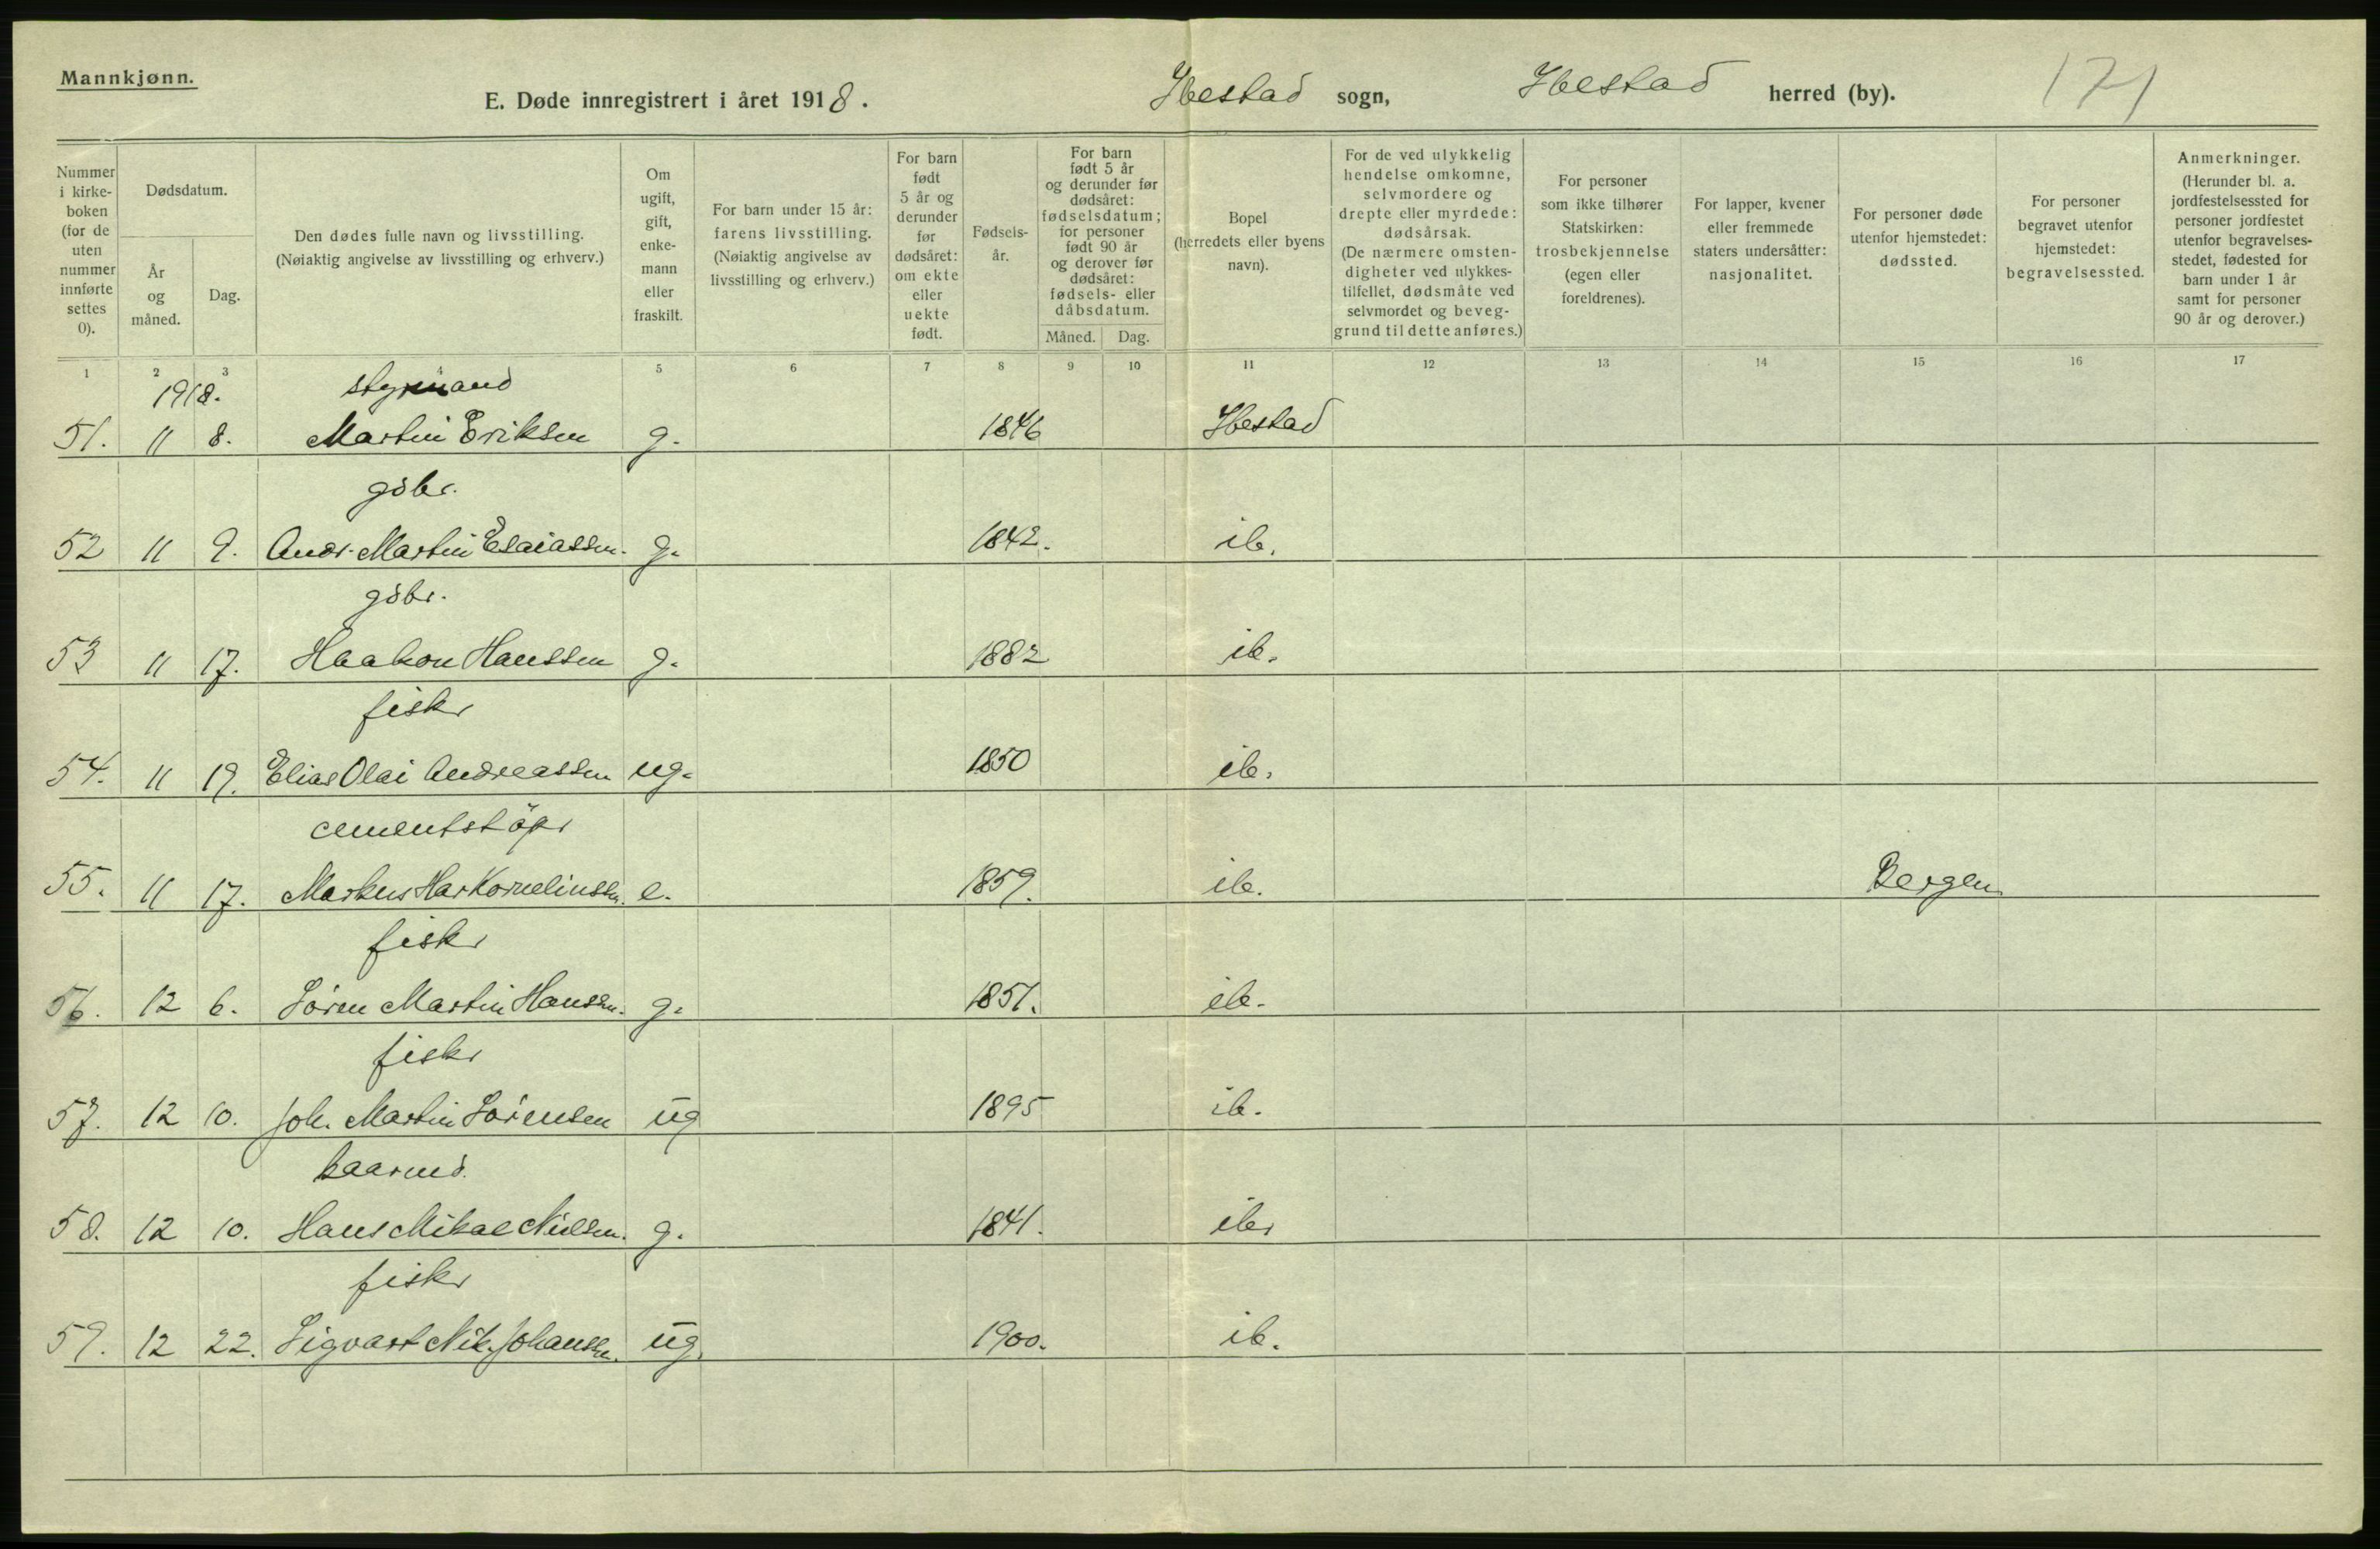 Mannkjønn.
E. Døde innregistrert i året 1918. Ibestad sogn, Ibestad herred (by). 171
Nummer i kirke- boken (for de uten nummer innførte settes 0).
Dødsdatum.
År og måned.
Dag.
Den dødes fulle navn og livsstilling.
(Nøiaktig angivelse av livsstilling og erhverv.)
Om ugift, gift, enke- mann eller fraskilt.
For barn under 15 år: farens livsstilling. (Nøiaktig angivelse av livsstilling og erhverv.)
For barn født 5 år og derunder før dødsåret: om ekte eller uekte født.
Fødsels- år.
For barn født 5 år og derunder før dødsåret: fødselsdatum; for personer født 90 år og derover før dødsåret: fødsels- eller dåbsdatum.
Måned. Dag.
Bopel (herredets eller byens navn).
For de ved ulykkelig hendelse omkomne, selvmordere og drepte eller myrdede: dødsårsak. (De nærmere omsten- digheter ved ulykkes- tilfellet, dødsmåte ved selvmordet og beveg- grund til dette anføres.)
For personer som ikke tilhører Statskirken: trosbekjennelse (egen eller foreldrenes).
For lapper, kvener eller fremmede staters undersåtter: nasjonalitet.
For personer døde utenfor hjemstedet: dødssted.
For personer begravet utenfor hjemstedet: begravelsessted.
Anmerkninger. (Herunder bl. a. jordfestelsessted for personer jordfestet utenfor begravelses- stedet, fødested for barn under 1 år samt for personer 90 år og derover.)
1 2 3 4 5 6 7 8 9 10 11 12 13 14 15 16 17
1918. styrmand
51. 11 8. Martin Eriksen g. 1846 Ibestad
gdbr.
52 11 9. Andr. Martin Esaiassen. g. 1842. ib.
gdbr.
53 11 17. Haakon Hanssen g. 1882 ib.
fisker
54. 11 19. Elias Olai Andreassen ug. 1850 ib.
cementstöper
55. 11 17. Markus Har Kornelinssen. e. 1859. ib. Bergen
fisker
56. 12 6. Sören Martin Hanssen. g. 1851. ib.
fisker
57. 12 10. Joh. Martin Sörensen ug 1895 ib.
kaarmd.
58. 12 10. Hans Mikal Nielsen. g. 1841. ib.
fisker
59. 12 22. Sigvart Nik. Johanssen. ug. 1900. ib.